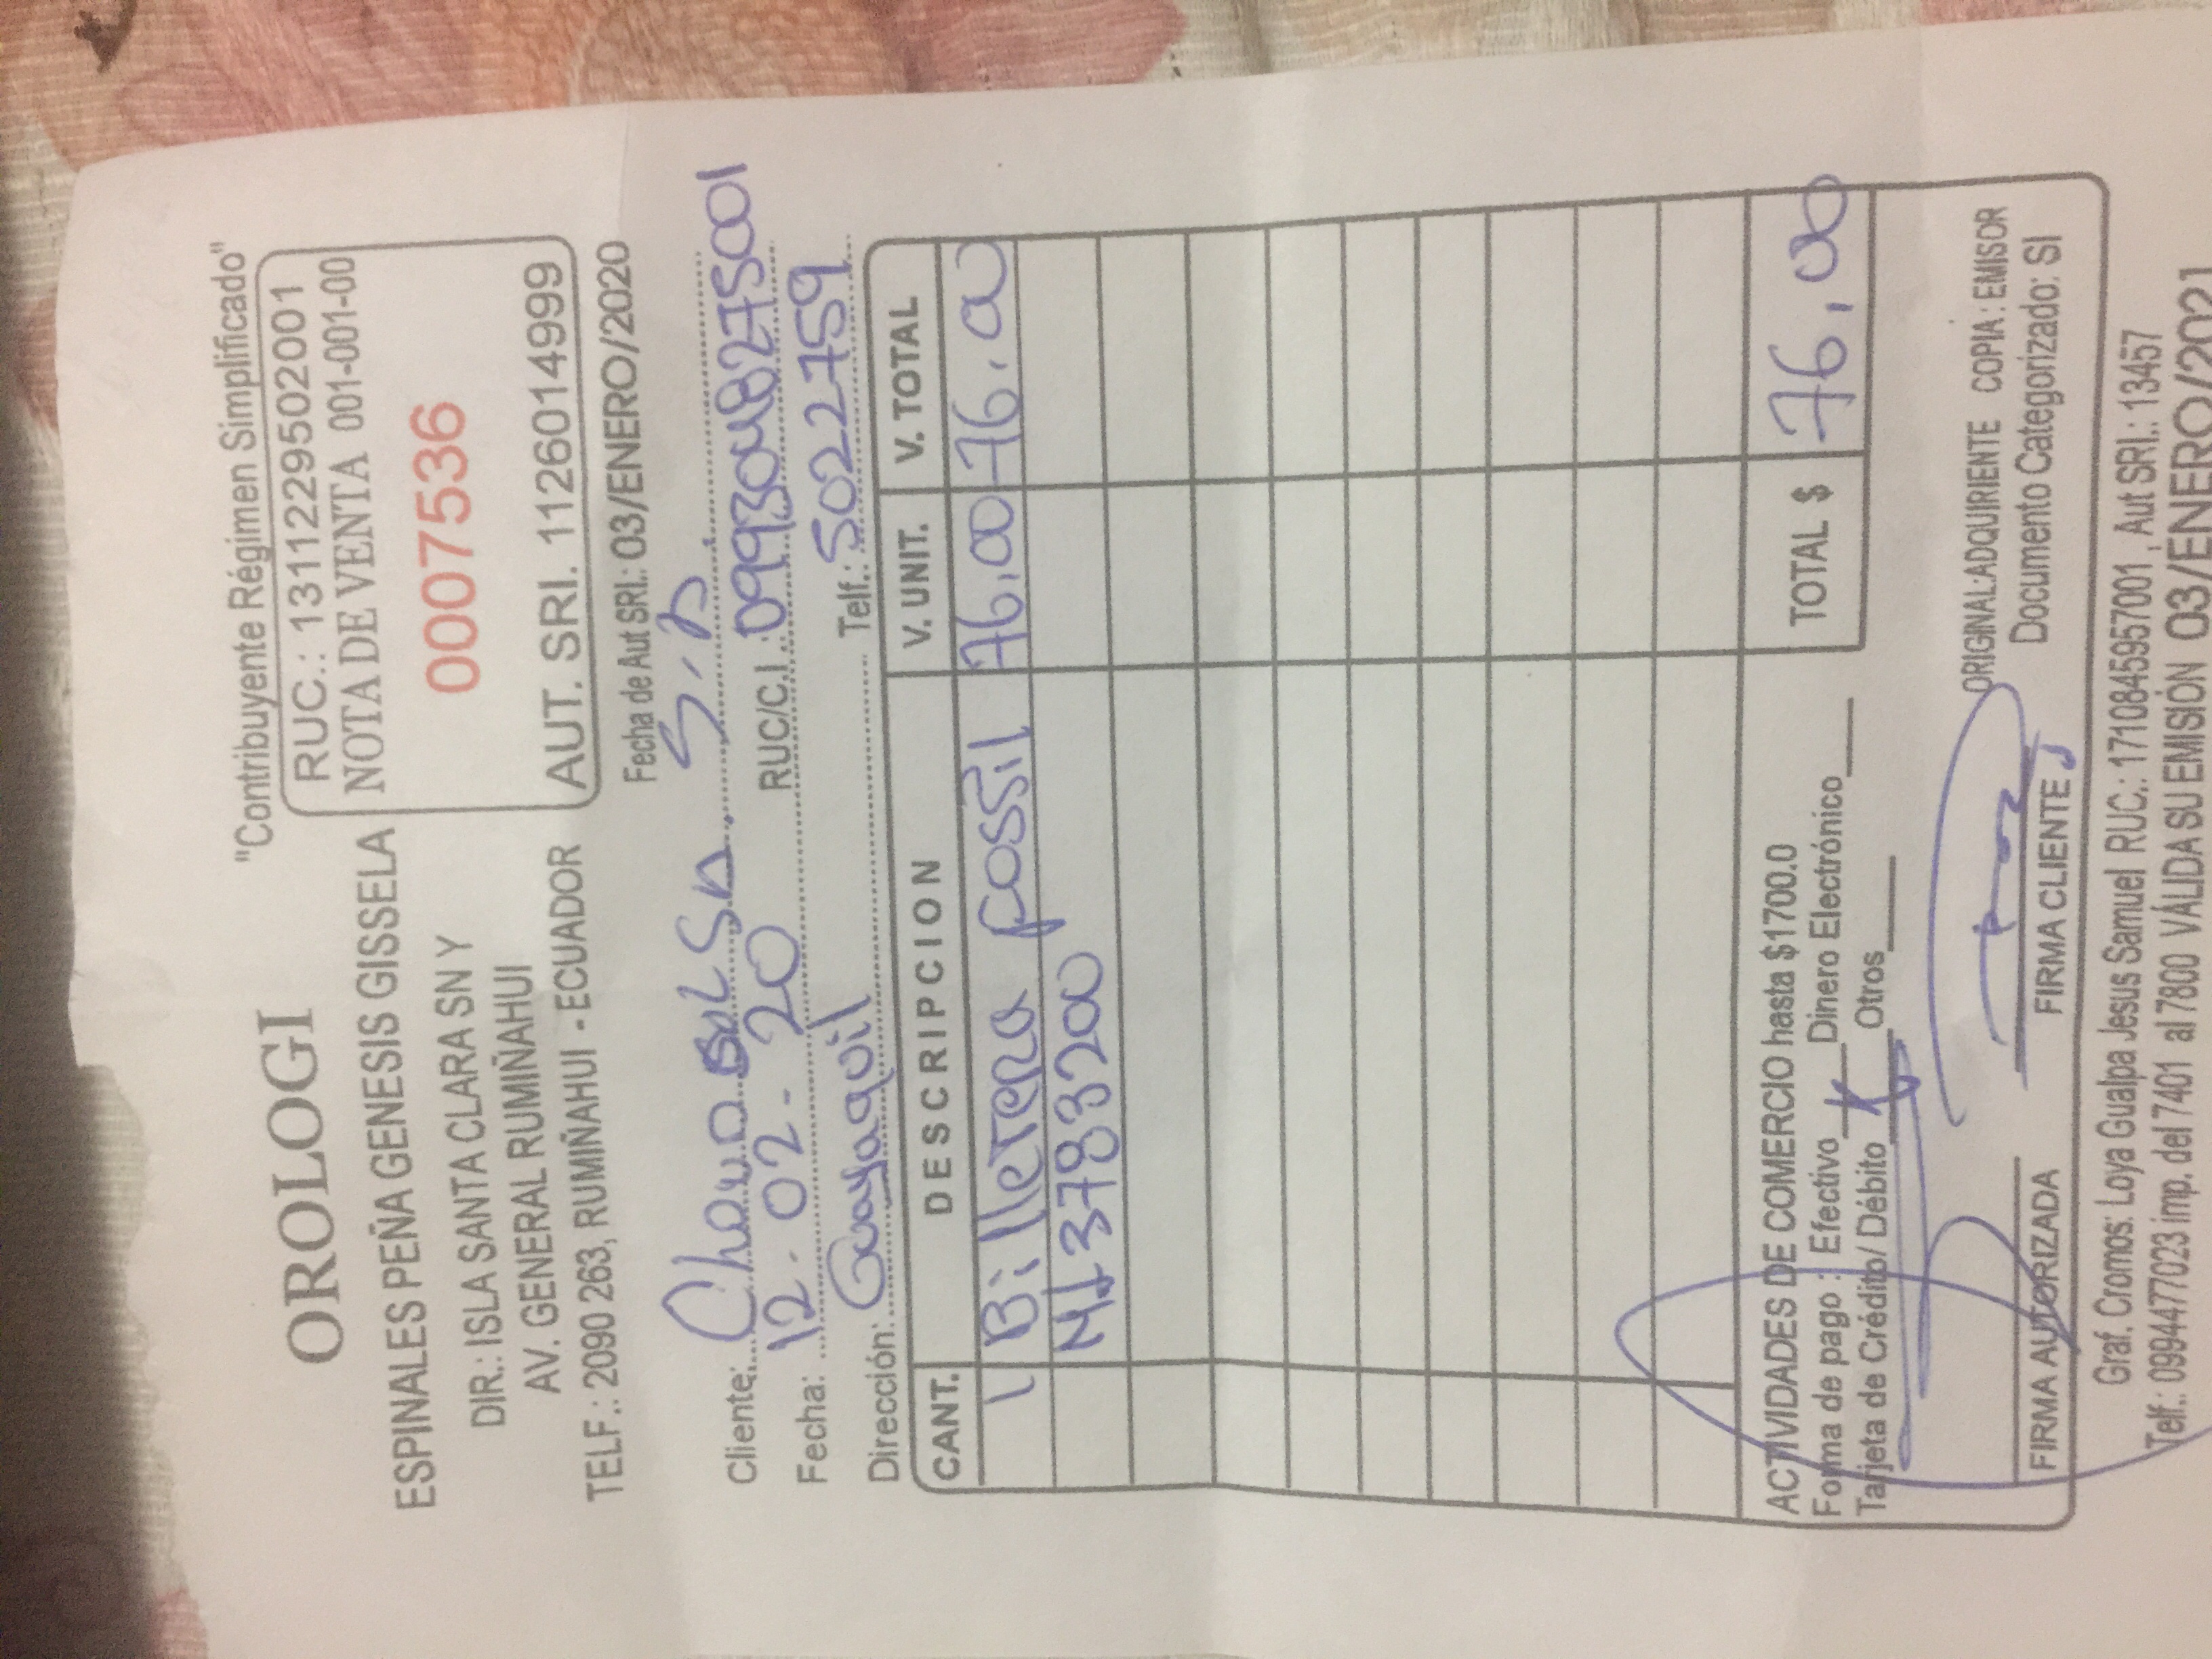 "Contribuyente Régimen Simplificado"
OROLOGI
ESPINALES PEÑA GENESIS GISSELA
DIR.: ISLA SANTA CLARA SN Y
AV. GENERAL RUMIÑAHUI
TELF.: 2090 263, RUMIÑAHUI - ECUADOR
RUC.: 1311229502001
NOTA DE VENTA 001-001-00
0007536
AUT. SRI. 1126014999
Fecha de Aut SRI.: 03/ENERO/2020
Cliente: S.A.
Fecha: 12-02-20 RUC/C.I.: 0993048275001
Dirección: Guayaquil Telf.: 5022759
CANT. DESCRIPCION V. UNIT. V. TOTAL
1 Billetera fossil 76,00 76,00
TOTAL $ 76,00
ACTIVIDADES DE COMERCIO hasta $1700.0
Forma de pago : Efectivo____ Dinero Electrónico____
Tarjeta de Crédito/ Débito x Otros____
FIRMA AUTORIZADA
FIRMA CLIENTE
ORIGINAL:ADQUIRIENTE COPIA : EMISOR
Documento Categorizado: SI
Graf. Cromos: Loya Gualpa Jesus Samuel RUC.: 1710845957001 , Aut SRI.: 13457
Telf.: 0994477023 imp. del 7401 al 7800 VÁLIDA SU EMISIÓN 03/ENERO/2021